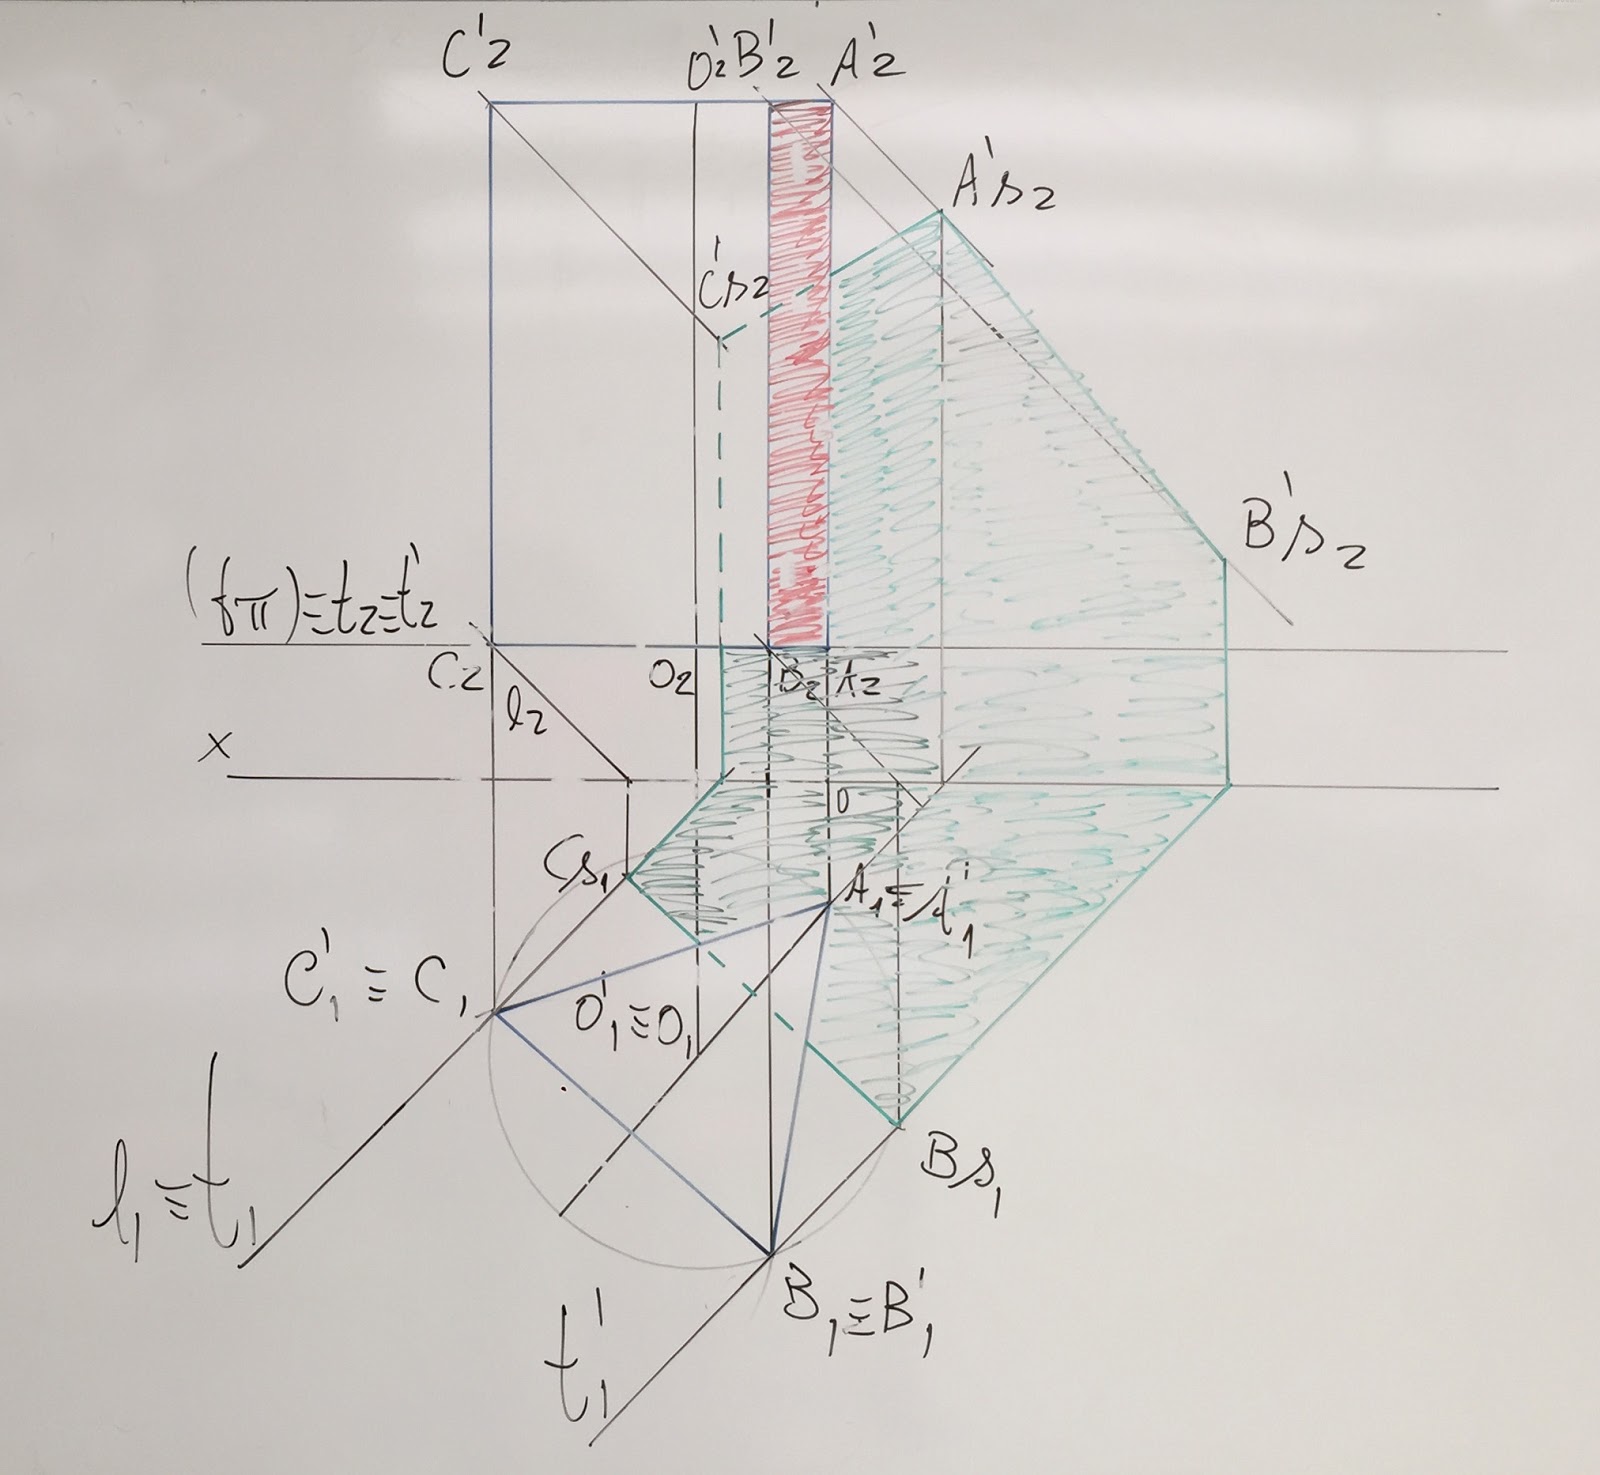 C'2 O'2 B'2 A'2
A's2
C's2
B's2
(fπ)≡t2≡t'2
C2 O2 B2 A2
l2
x
0
Cs1
A1≡A'1
C'1≡C1
O'1≡O1
Bs1
l1≡t1
B1≡B'1
t'1